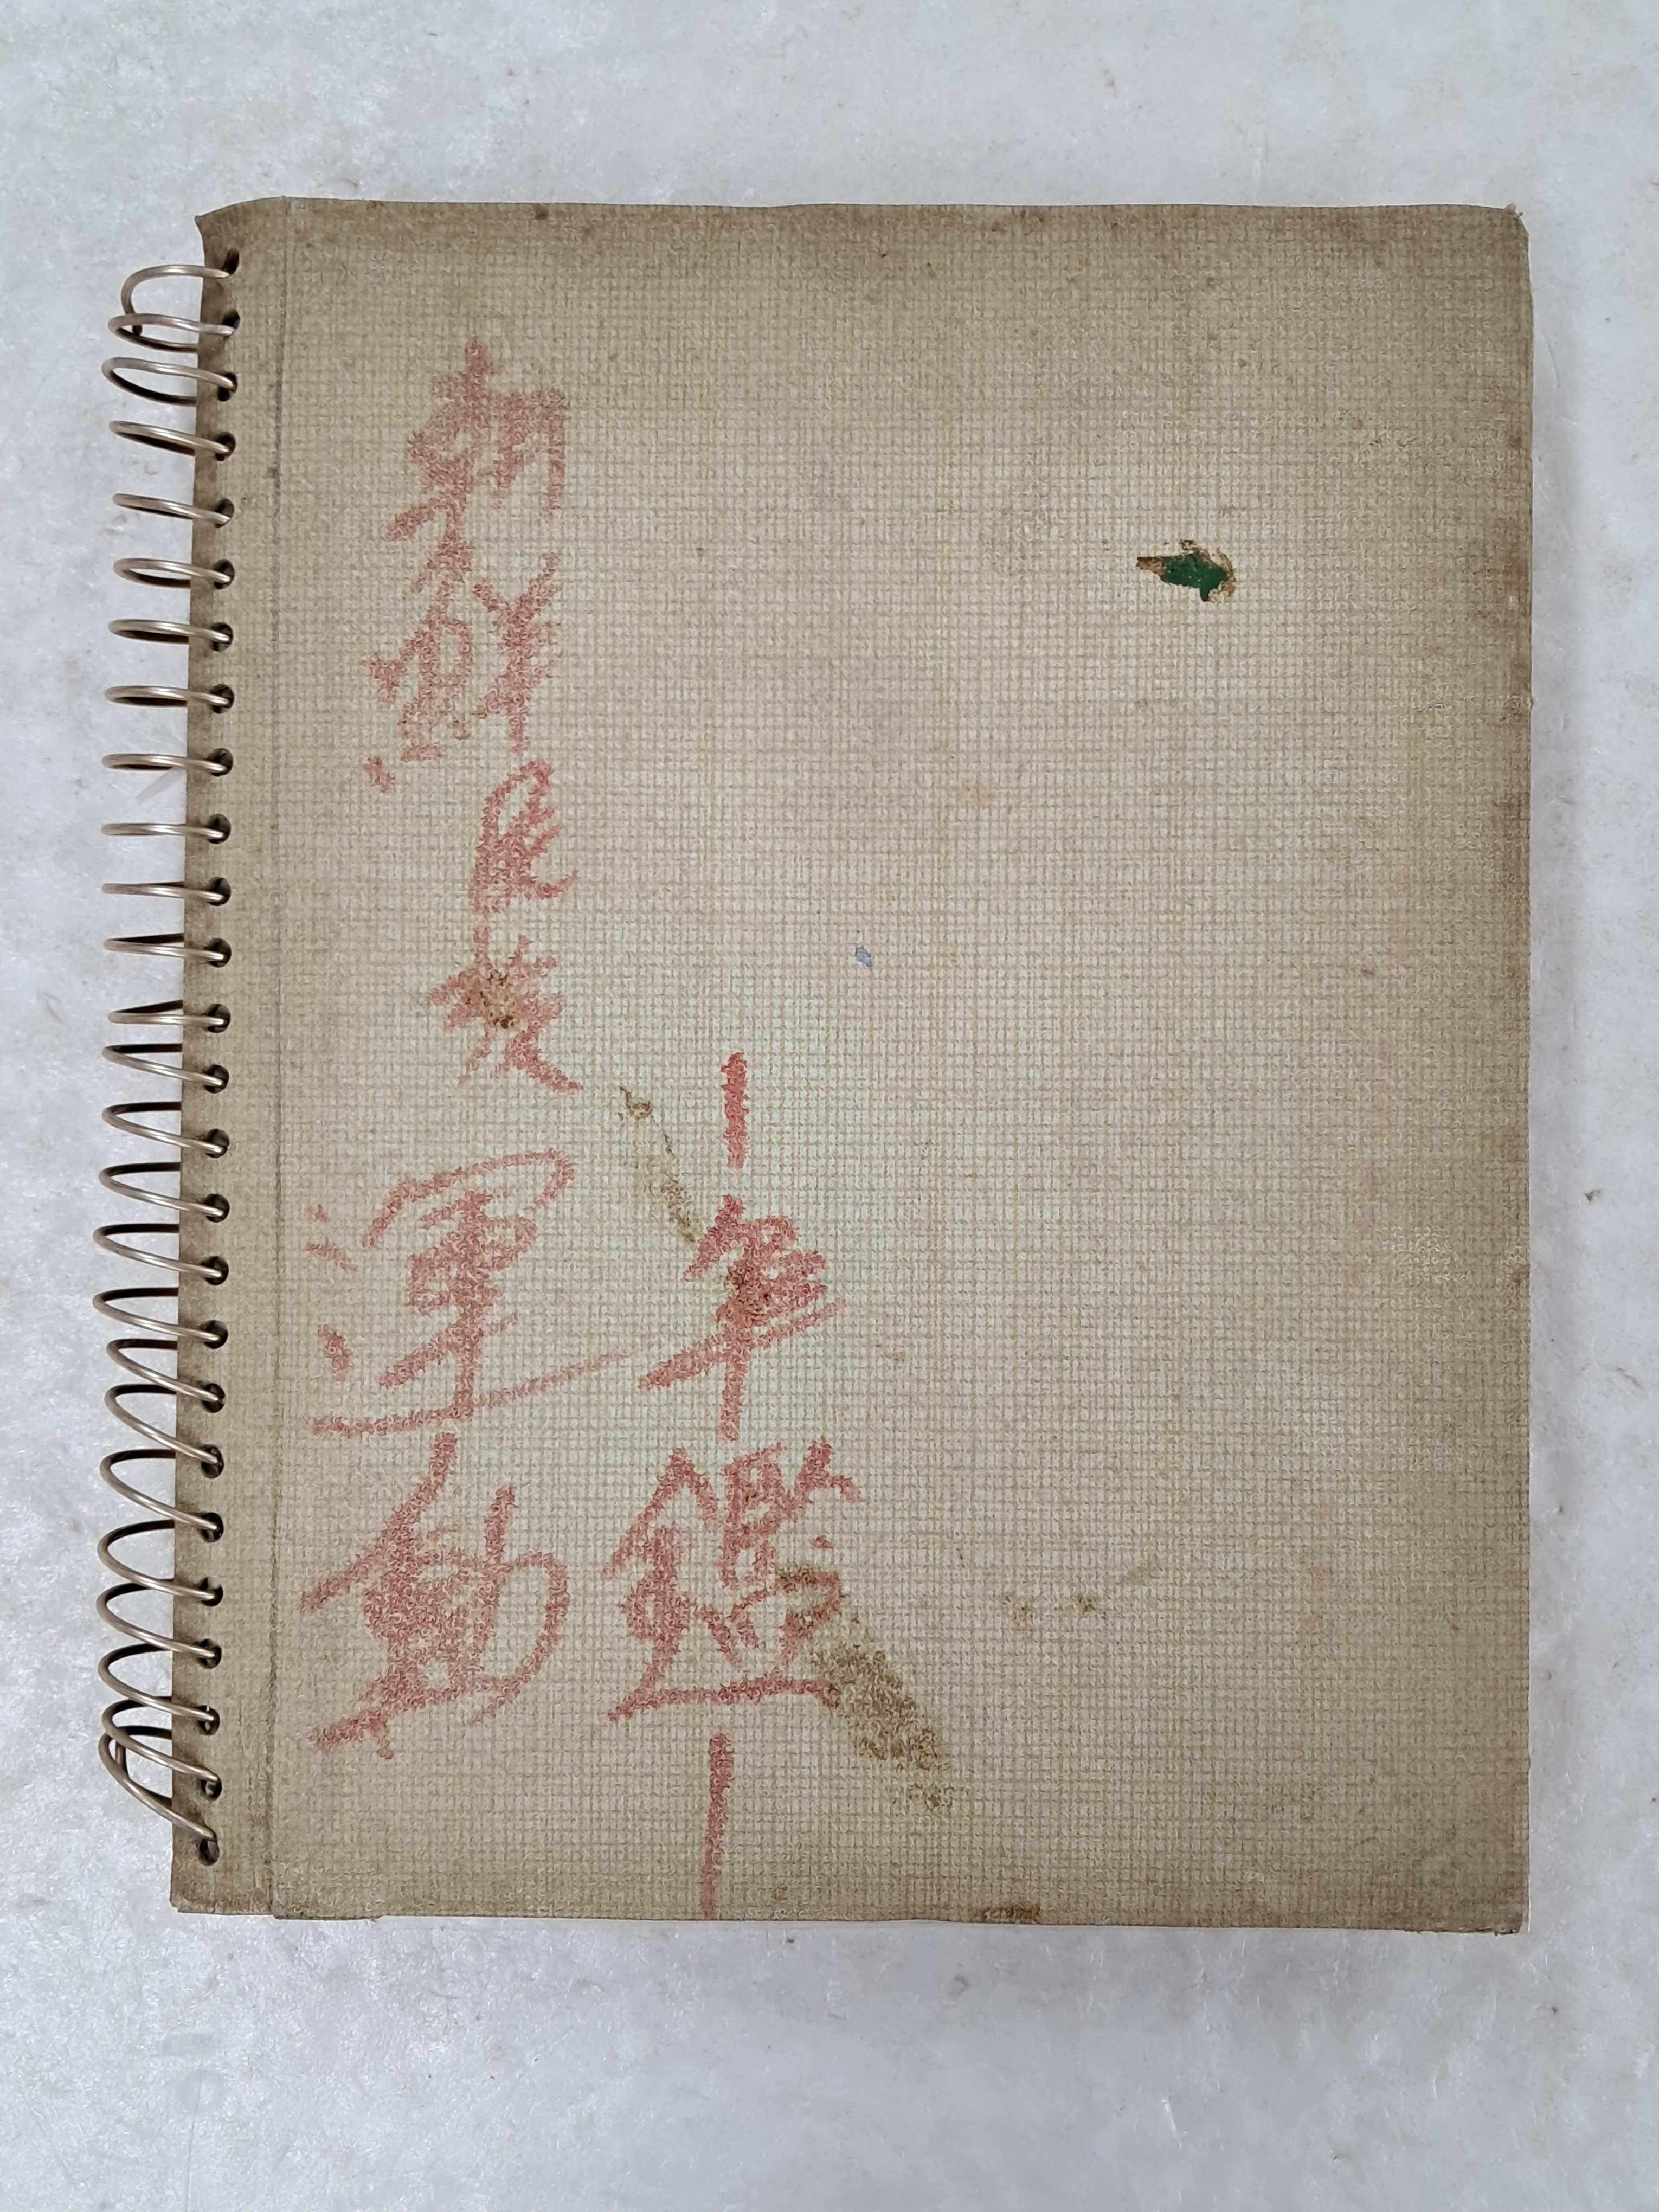 朝鮮民族運動
—年鑑—